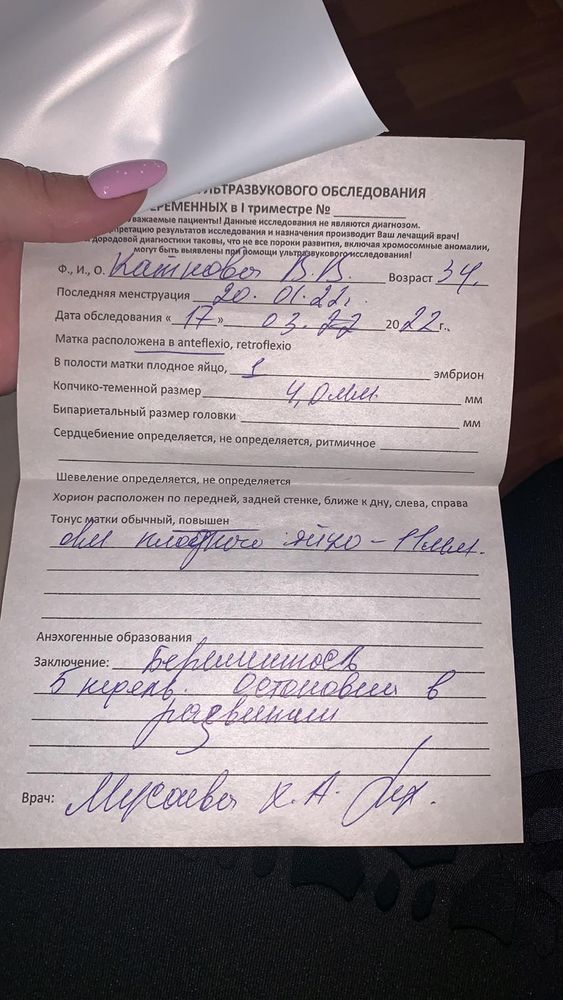 УЛЬТРАЗВУКОВОГО ОБСЛЕДОВАНИЯ
БЕРЕМЕННЫХ в I триместре № ________
Уважаемые пациенты! Данные исследования не являются диагнозом.
результатов исследования и назначения производит Ваш лечащий врач!
дородовой диагностики таковы, что не все пороки развития, включая хромосомные аномалии,
могут быть выявлены при помощи ультразвукового исследования!
Ф., И., О. В.В. Возраст 34
Последняя менструация 20.01.22г.
Дата обследования «17» 03.22 2022г.,
Матка расположена в anteflexio, retroflexio
В полости матки плодное яйцо, 1 эмбрион
Копчико-теменной размер 4,0 мм. мм
Бипариетальный размер головки мм
Сердцебиение определяется, не определяется, ритмичное
Шевеление определяется, не определяется
Хорион расположен по передней, задней стенке, ближе к дну, слева, справа
Тонус матки обычный, повышен
плодного яйца - 11мм.
Анэхогенные образования
Заключение: Беременность
5 недель. Остановка в
развитии
Врач: Мусаева Х.А.